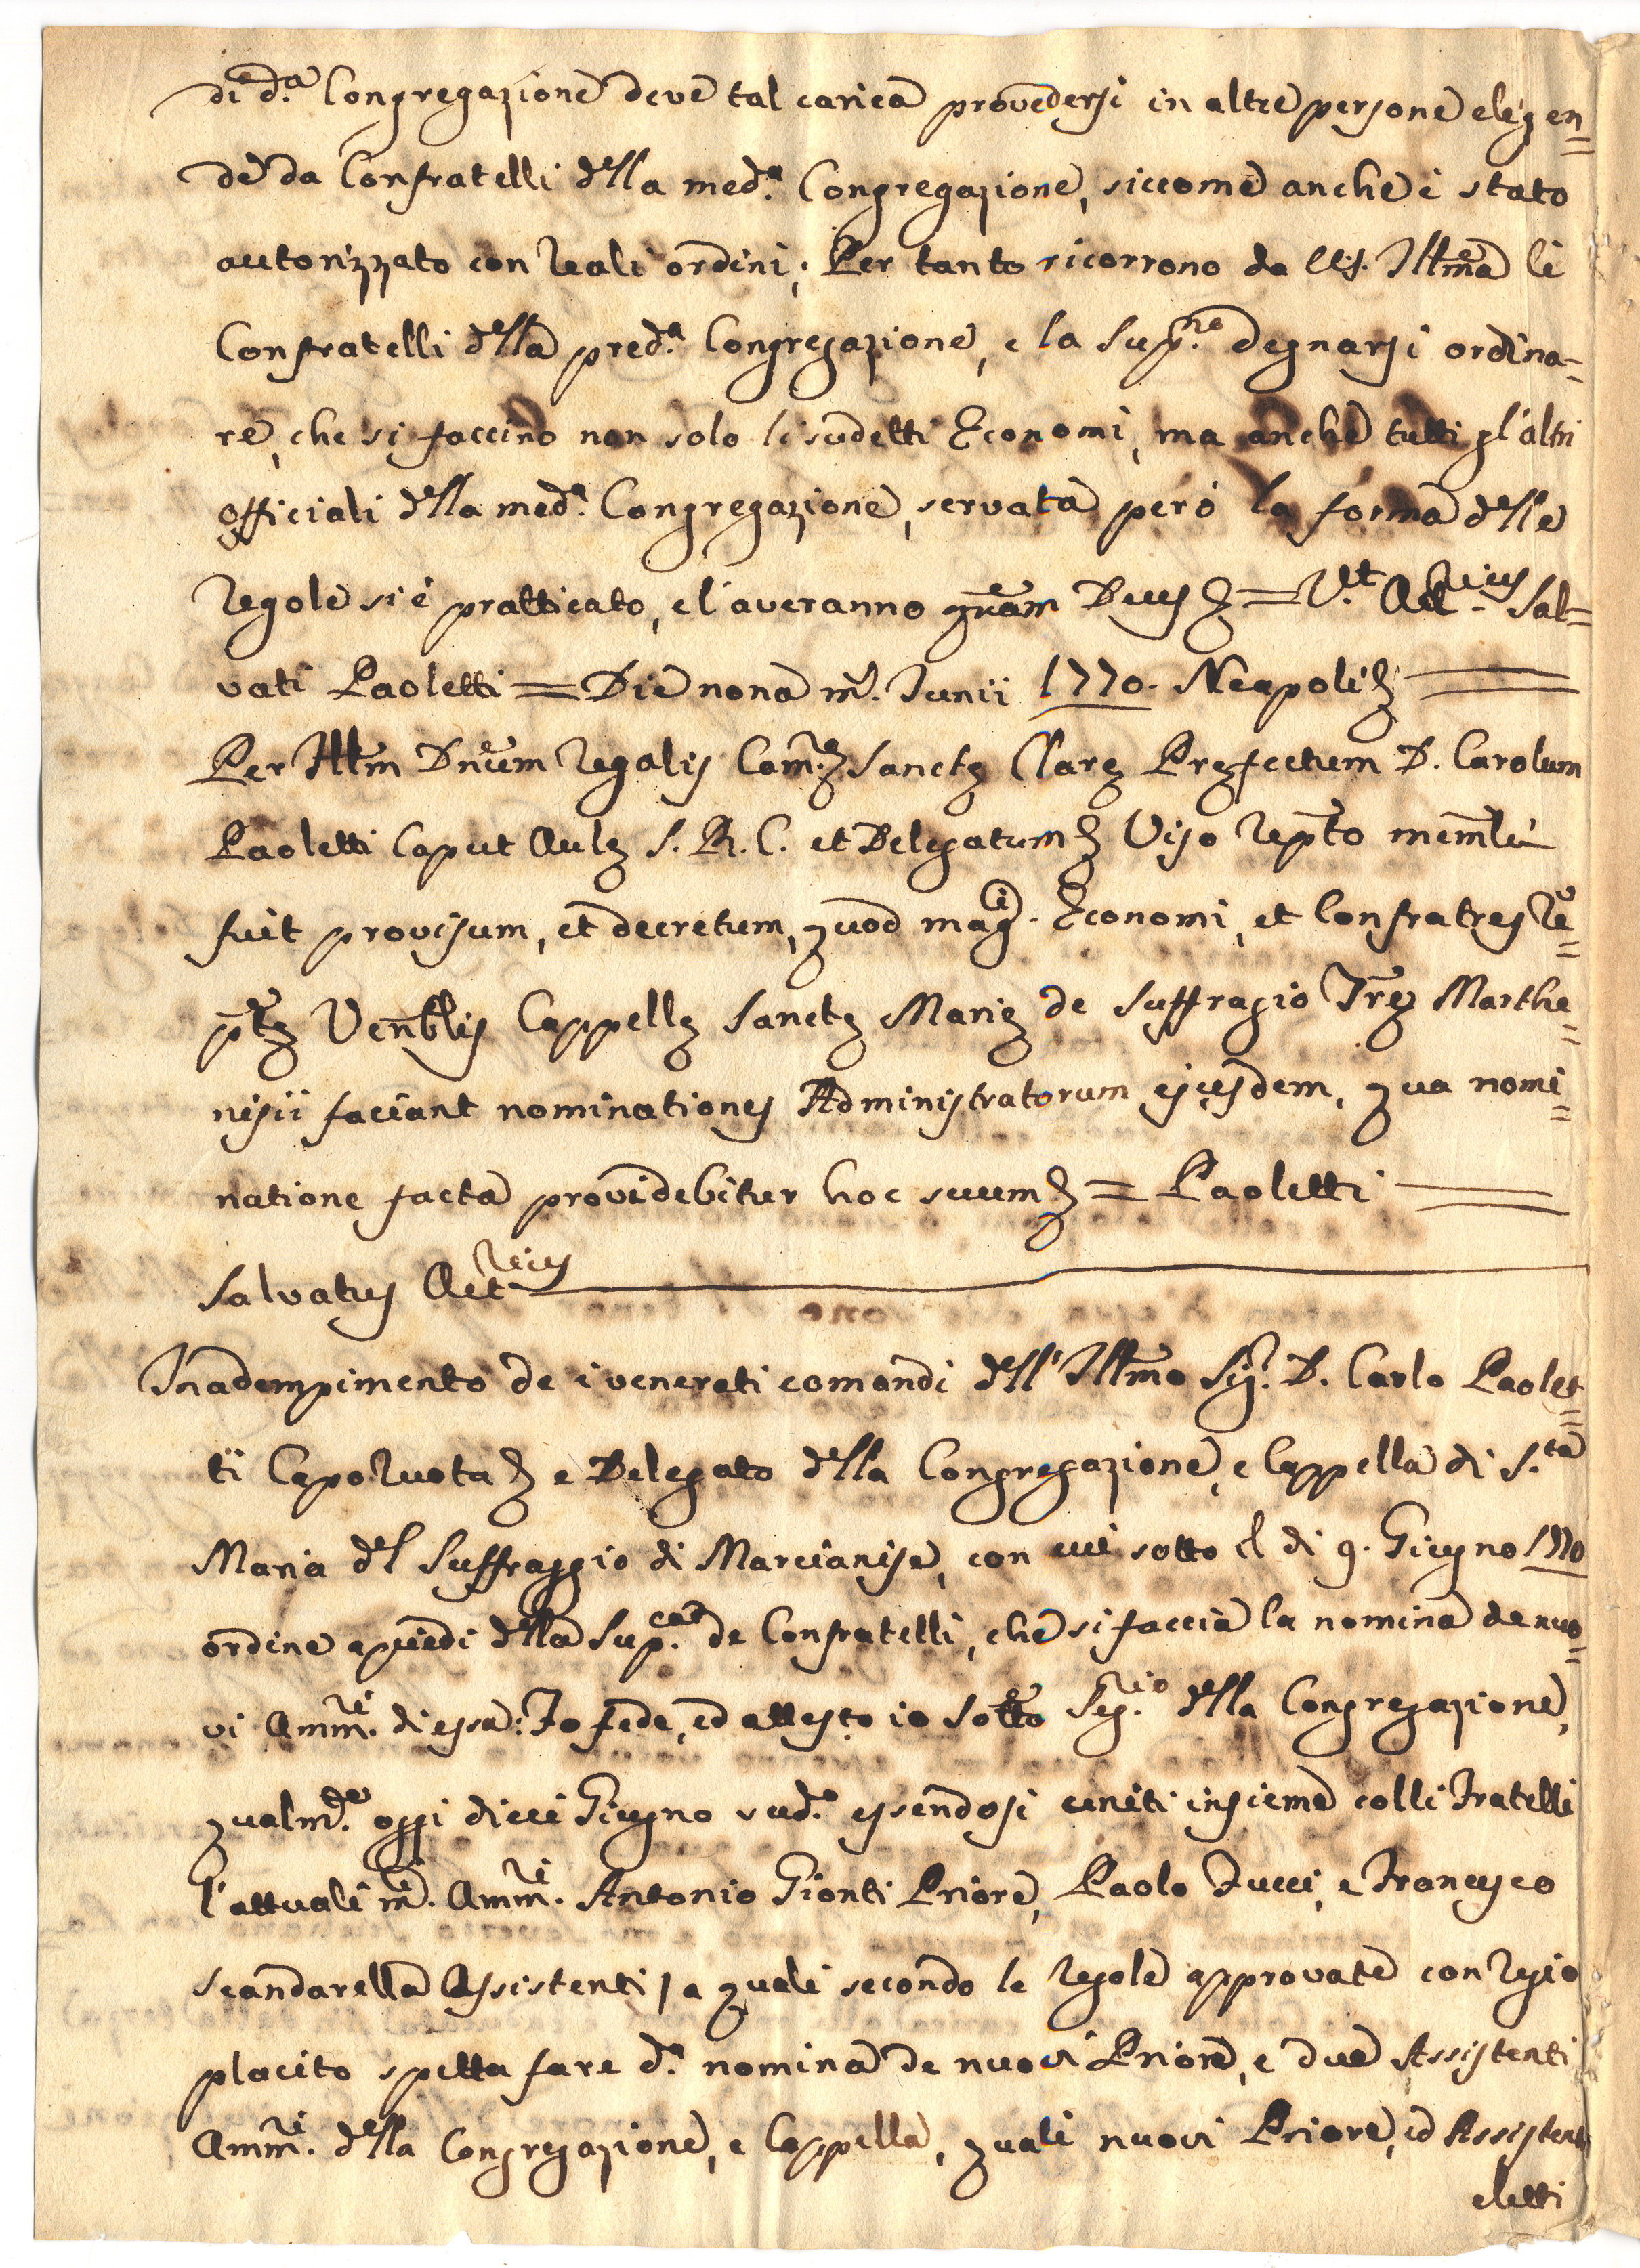 di d.ᵃ Congregazione deve tal carica provedersi in altre persone eligen=
de da Confratelli della med.ᵃ Congregazione, siccome anche è stato
autorizzato con Reali ordini; Per tanto ricorrono da V.S. Illma li
Confratelli della pred.ᵃ Congregazione, e la supp.ⁿᵒ degnarsi ordina=
re, che si faccino non solo li sudetti Economi, ma anche tutti gl'altri
officiali della med.ᵃ Congregazione, servata però la forma delle
Regole si è pratticato, e l'averanno quam Deus &= V.ᵗ Act.ʳⁱᵘˢ Sal=
vati Paoletti = Die nona m. Junii 1770. Neapoli &
Per Illm Dnum Regalis Cam.ᵉ Sanctę Clarę Pręfectum D. Carolum
Paoletti Caput Aulę S.R.C. et Delegatum & Viso Reptto memli
fuit provisum, et decretum, quod mag.ᶜⁱ Economi, et Confratres Re=
pttę Venblis Cappellę Sanctę Marię de Suffragio Tręe Marthe=
nisii faciant nominationes Administratorum ejusdem, qua nomi=
natione facta providebitur hoc suum & = Paoletti
Salvatus Act.ʳⁱᵘˢ
In adempimento de i venerati comandi dell'Illmo Sig.ʳ D. Carlo Paolet=
ti Capo Ruota & e Delegato della Congregazione, e Cappella di S.ᵗᵃ
Maria del Suffraggio di Marcianise, con cui sotto il di 9. Giugno 1770
ordine a piedi della Sup.ᶜᵃ de Confratelli, che si faccia la nomina de nuo=
vi Amm.ʳⁱ di essa: Fo fede, ed attesto io sotto Seg.ʳⁱᵒ della Congregazione,
qualm.ᵗᵉ oggi dieci Giugno sud.ᵒ essendosi uniti insieme colli Fratelli
l'attuali m.ᶜⁱ Amm.ʳⁱ Antonio Gionti Priore, Paolo Fucci, e Francesco
Scandarella Assistenti / a quali secondo le Regole approvate con Regio
placito spetta fare d.ᵃ nomina de nuovi Priore, e due Assistenti
Amm.ʳⁱ della Congregazione, e Cappella, quali nuovi Priore, ed Assistenti
eletti